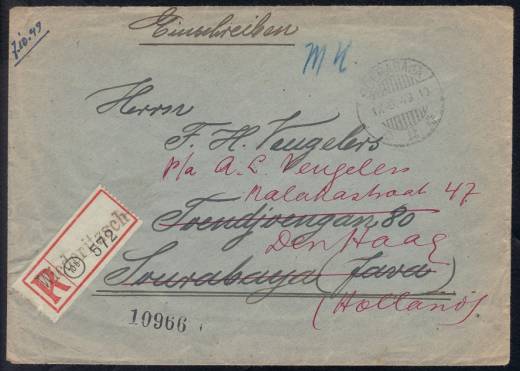 7.10.49
Einschreiben
M K.
SOERABAJA
Herrn
F. H. Veugelers
p/a A. L. Veugelers
Malakastraat 47
Toendjoengan 80
Den Haag
Sourabaya (Java)
(Holland)
R
572
10966